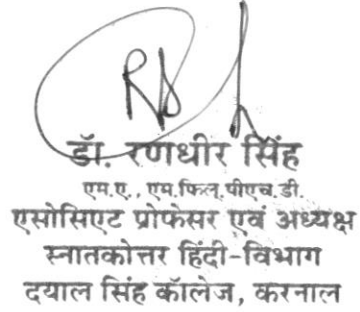 डॉ. रणधीर सिंह
एम.ए., एम.फिल.,पीएच.डी.
एसोसिएट प्रोफेसर एवं अध्यक्ष
स्नातकोत्तर हिंदी-विभाग
दयाल सिंह कॉलेज, करनाल